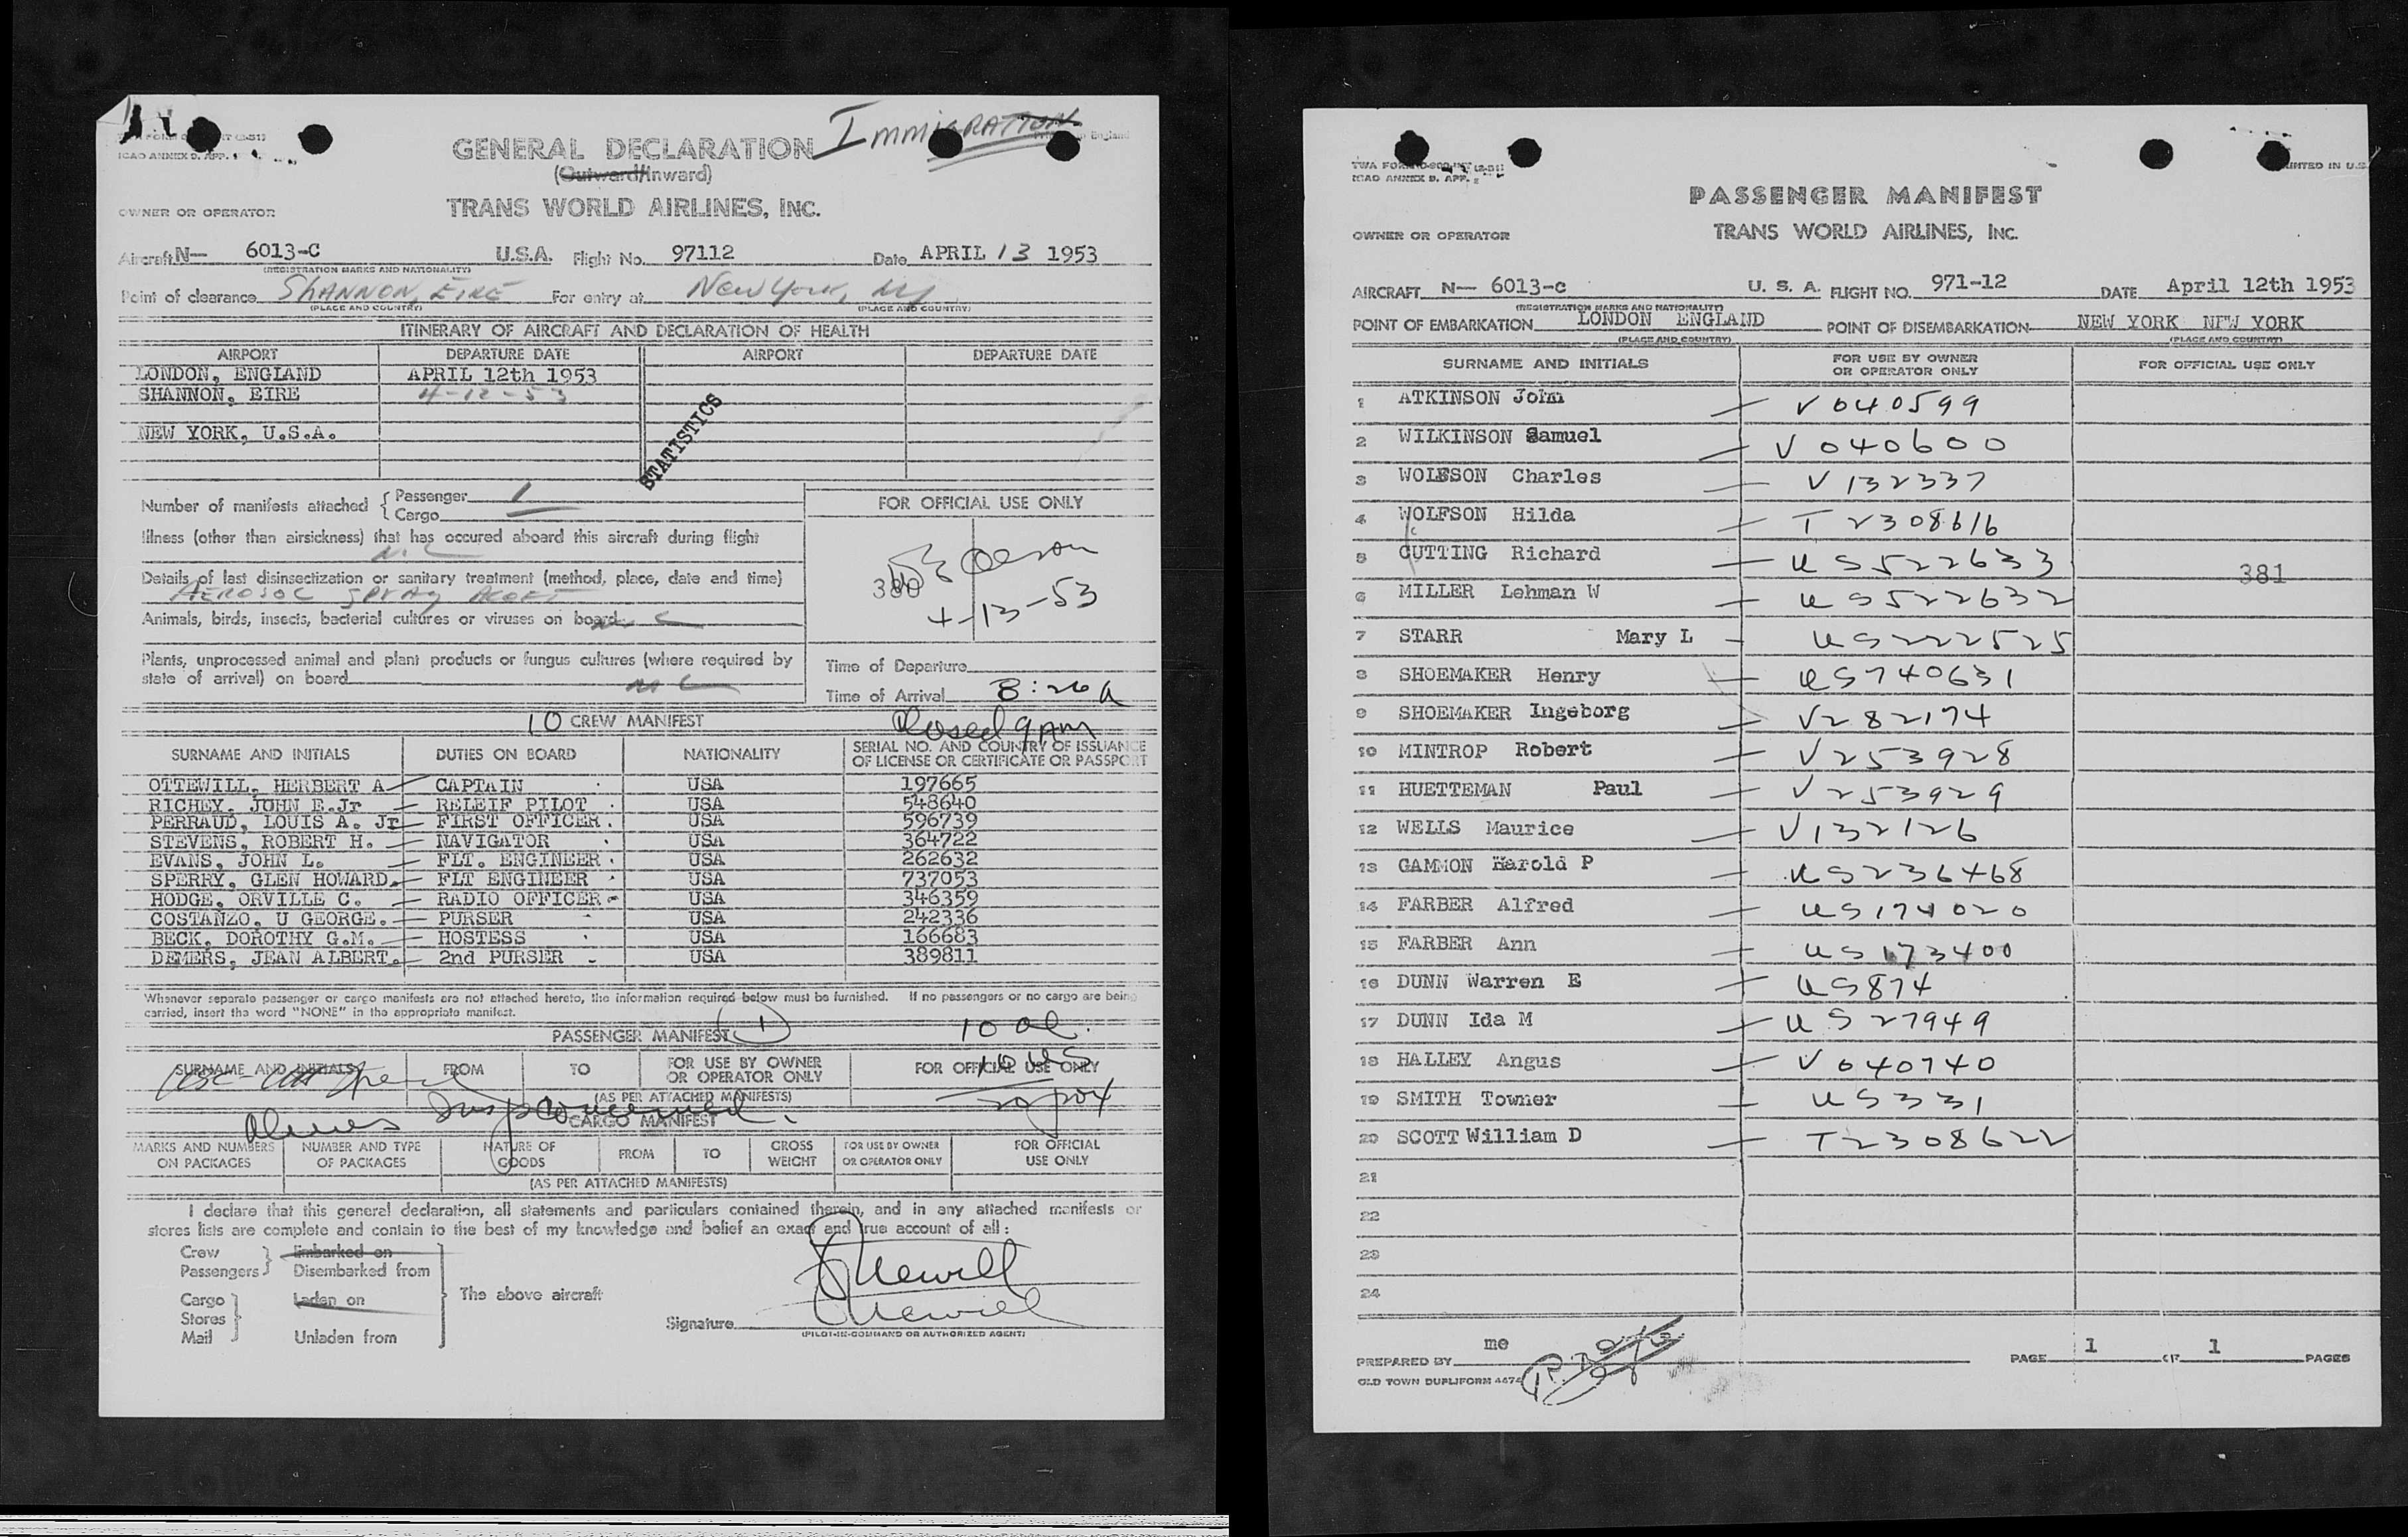 ICAO ANNEX 9. APP. 1
GENERAL DECLARATION
IMMIGRATION
(Outward/Inward)
OWNER OR OPERATOR
TRANS WORLD AIRLINES, INC.
Aircraft N— 6013-C U.S.A. Flight No. 97112 Date APRIL 13 1953
(REGISTRATION MARKS AND NATIONALITY)
Point of clearance SHANNON, EIRE For entry at New York, NY
(PLACE AND COUNTRY) (PLACE AND COUNTRY)
ITINERARY OF AIRCRAFT AND DECLARATION OF HEALTH
AIRPORT DEPARTURE DATE AIRPORT DEPARTURE DATE
LONDON, ENGLAND APRIL 12th 1953
SHANNON, EIRE 4-12-53
NEW YORK, U.S.A.
STATISTICS
Number of manifests attached { Passenger 1
Cargo
FOR OFFICIAL USE ONLY
Illness (other than airsickness) that has occured aboard this aircraft during flight
NIL
Details of last disinsectization or sanitary treatment (method, place, date and time)
AEROSOL SPRAY
380
4-13-53
Animals, birds, insects, bacterial cultures or viruses on board
Plants, unprocessed animal and plant products or fungus cultures (where required by
state of arrival) on board NIL
Time of Departure
Time of Arrival 8:26 A
10 CREW MANIFEST
Closed 9 AM
SURNAME AND INITIALS DUTIES ON BOARD NATIONALITY SERIAL NO. AND COUNTRY OF ISSUANCE
OF LICENSE OR CERTIFICATE OR PASSPORT
OTTEWILL, HERBERT A CAPTAIN USA 197665
RICHEY, JOHN E.Jr RELEIF PILOT USA 548640
PERRAUD, LOUIS A. Jr FIRST OFFICER. USA 596739
STEVENS, ROBERT H. NAVIGATOR USA 364722
EVANS, JOHN L. FLT. ENGINEER USA 262632
SPERRY, GLEN HOWARD. FLT ENGINEER USA 737053
HODGE, ORVILLE C. RADIO OFFICER USA 346359
COSTANZO, U GEORGE. PURSER USA 242336
BECK, DOROTHY G.M. HOSTESS USA 166683
DEMERS, JEAN ALBERT. 2nd PURSER USA 389811
Whenever separate passenger or cargo manifests are not attached hereto, the information required below must be furnished. If no passengers or no cargo are being
carried, insert the word "NONE" in the appropriate manifest.
PASSENGER MANIFEST 1
10 al.
10 US
SURNAME AND INITIALS FROM TO FOR USE BY OWNER
OR OPERATOR ONLY
FOR OFFICIAL USE ONLY
(AS PER ATTACHED MANIFESTS)
20 pax
CARGO MANIFEST
MARKS AND NUMBERS
ON PACKAGES
NUMBER AND TYPE
OF PACKAGES
NATURE OF
GOODS
FROM
TO
GROSS
WEIGHT
FOR USE BY OWNER
OR OPERATOR ONLY
FOR OFFICIAL
USE ONLY
(AS PER ATTACHED MANIFESTS)
I declare that this general declaration, all statements and particulars contained therein, and in any attached manifests or
stores lists are complete and contain to the best of my knowledge and belief an exact and true account of all :
Crew } Embarked on
Passengers } Disembarked from
Cargo } Laden on
Stores
Mail } Unladen from
The above aircraft
Signature
(PILOT-IN-COMMAND OR AUTHORIZED AGENT)
ICAO ANNEX 9. APP. 2
PRINTED IN U.S.
PASSENGER MANIFEST
OWNER OR OPERATOR
TRANS WORLD AIRLINES, INC.
AIRCRAFT N— 6013-C U. S. A. FLIGHT NO. 971-12 DATE April 12th 1953
(REGISTRATION MARKS AND NATIONALITY)
POINT OF EMBARKATION LONDON ENGLAND POINT OF DISEMBARKATION NEW YORK NEW YORK
(PLACE AND COUNTRY) (PLACE AND COUNTRY)
SURNAME AND INITIALS FOR USE BY OWNER
OR OPERATOR ONLY
FOR OFFICIAL USE ONLY
1 ATKINSON John V 040599
2 WILKINSON Samuel V 040600
3 WOLFSON Charles V 132337
4 WOLFSON Hilda T 2308616
5 CUTTING Richard US522633
381
6 MILLER Lehman W US522632
7 STARR Mary L US222525
8 SHOEMAKER Henry US740631
9 SHOEMAKER Ingeborg V282174
10 MINTROP Robert V253928
11 HUETTEMAN Paul V253929
12 WELLS Maurice V132126
13 GAMMON Harold P US236468
14 FARBER Alfred US174020
15 FARBER Ann US173400
16 DUNN Warren E US874
17 DUNN Ida M US27949
18 HALLEY Angus V040740
19 SMITH Towner US331
20 SCOTT William D T2308622
21
22
23
24
PREPARED BY me
PAGE 1 OF 1 PAGES
OLD TOWN DUPLIFORM 4474